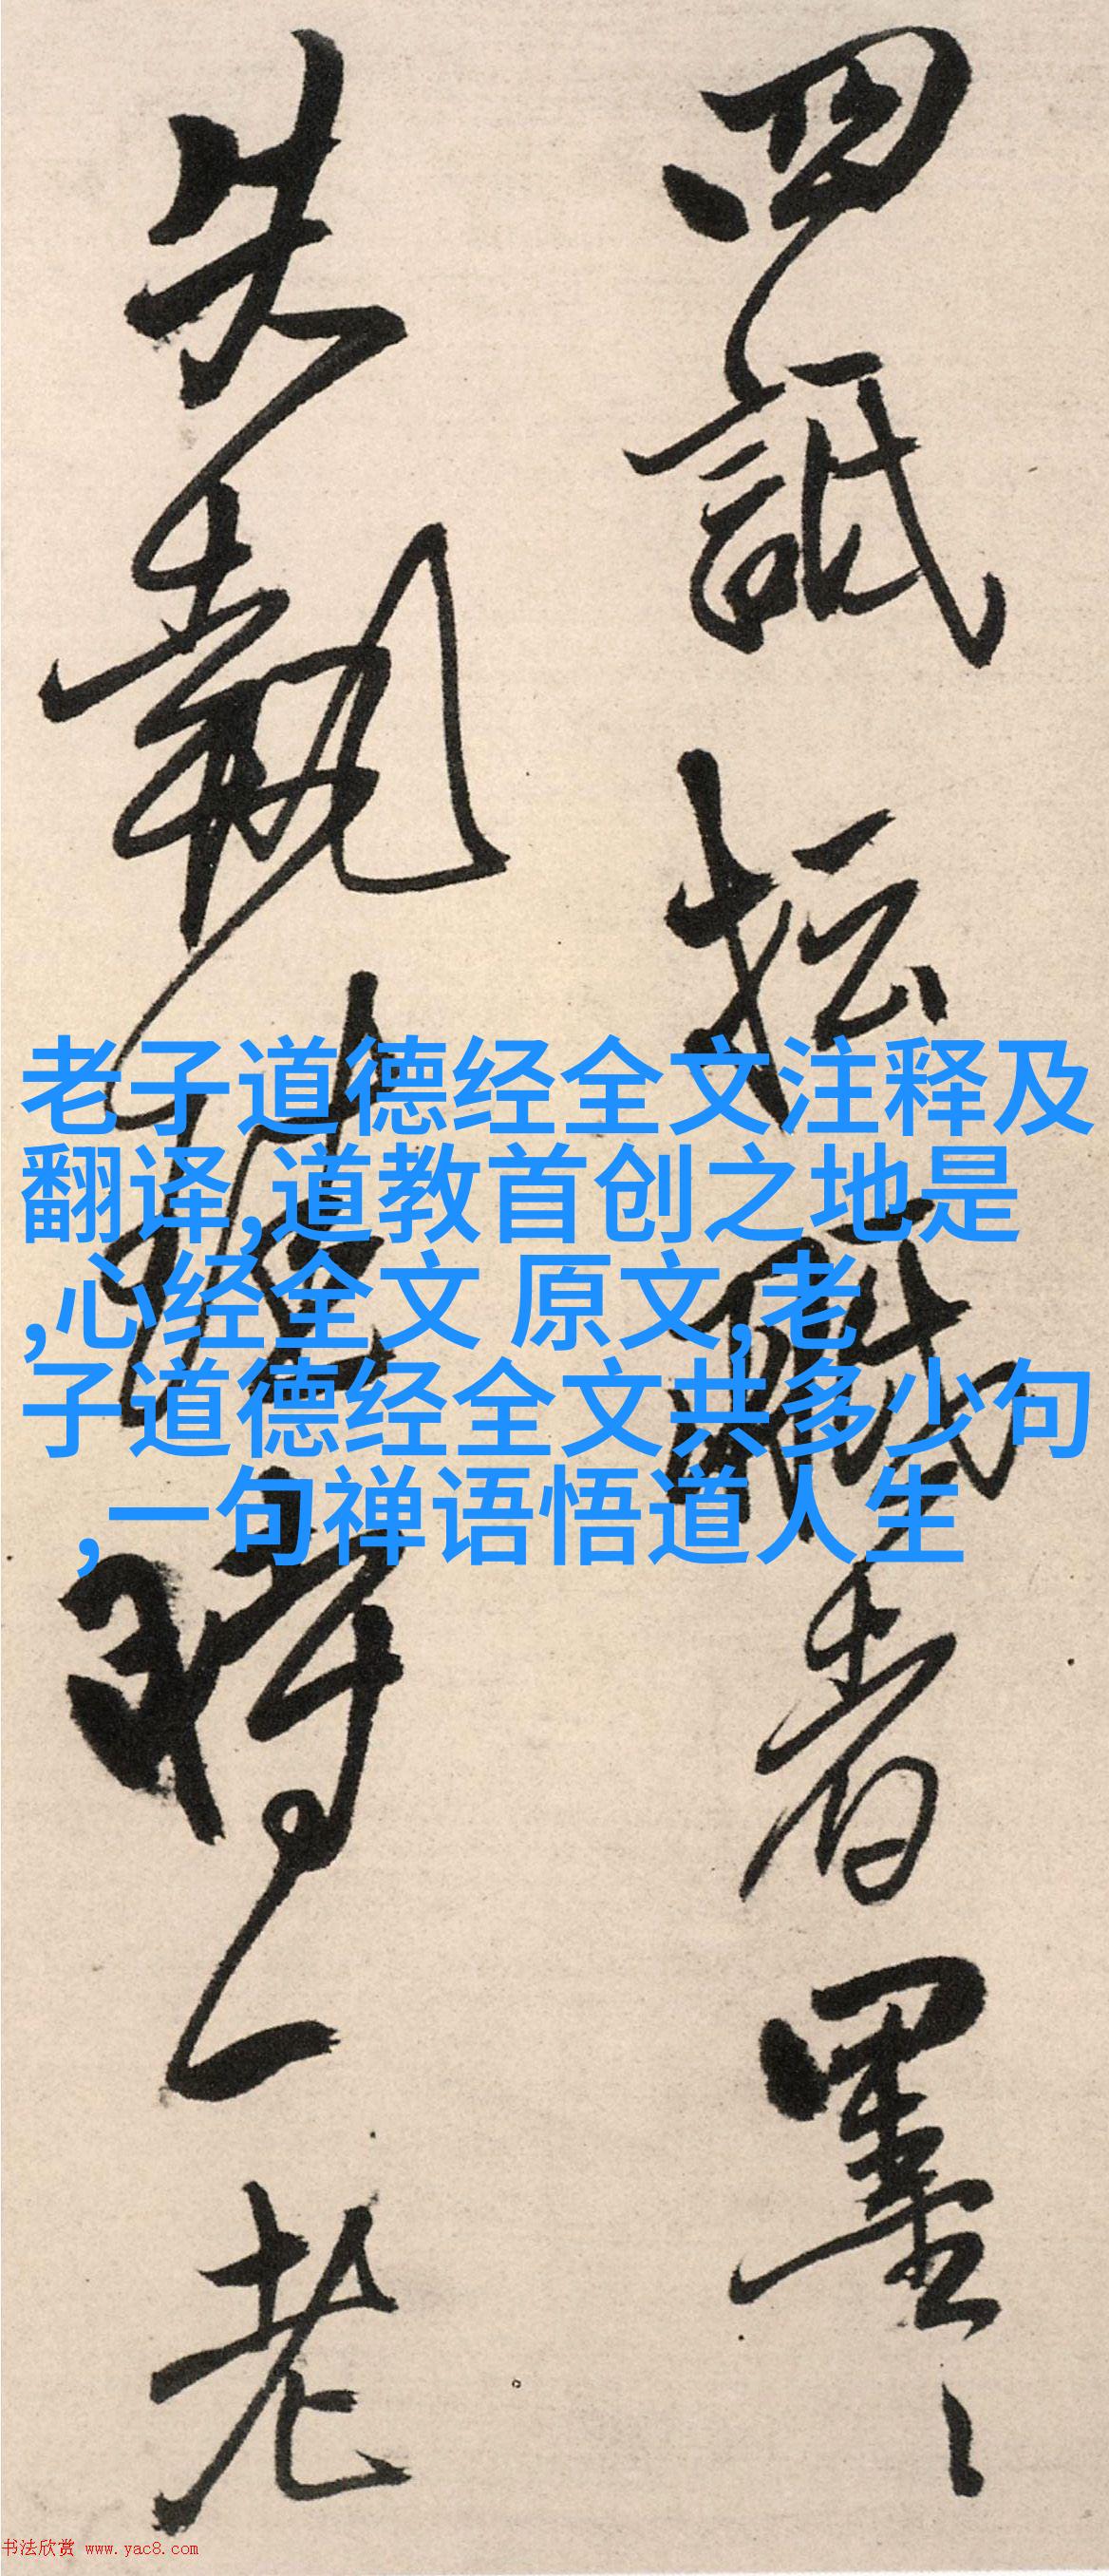 四詆 者墨
失執 時一老
老子道德经全文注释及
翻译,道教首创之地是
,心经全文 原文,老
子道德经全文共多少句
,一句禅语悟道人生
书法欣赏 www.yac8.com